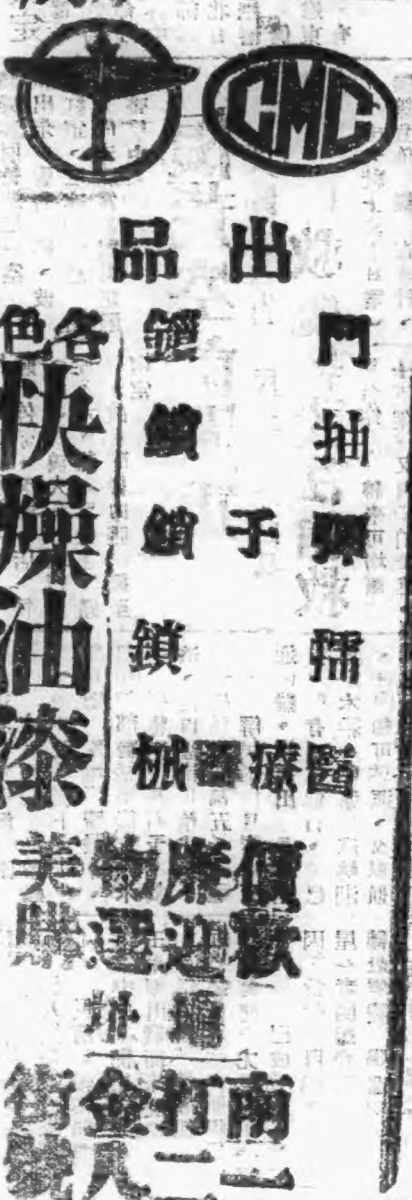 CMC
出品
門鎖
抽鎖
彈子鎖
鎖
醫療器械
各色
快燥油漆
價廉物美
歡迎選購
址
南打金街
一二八號